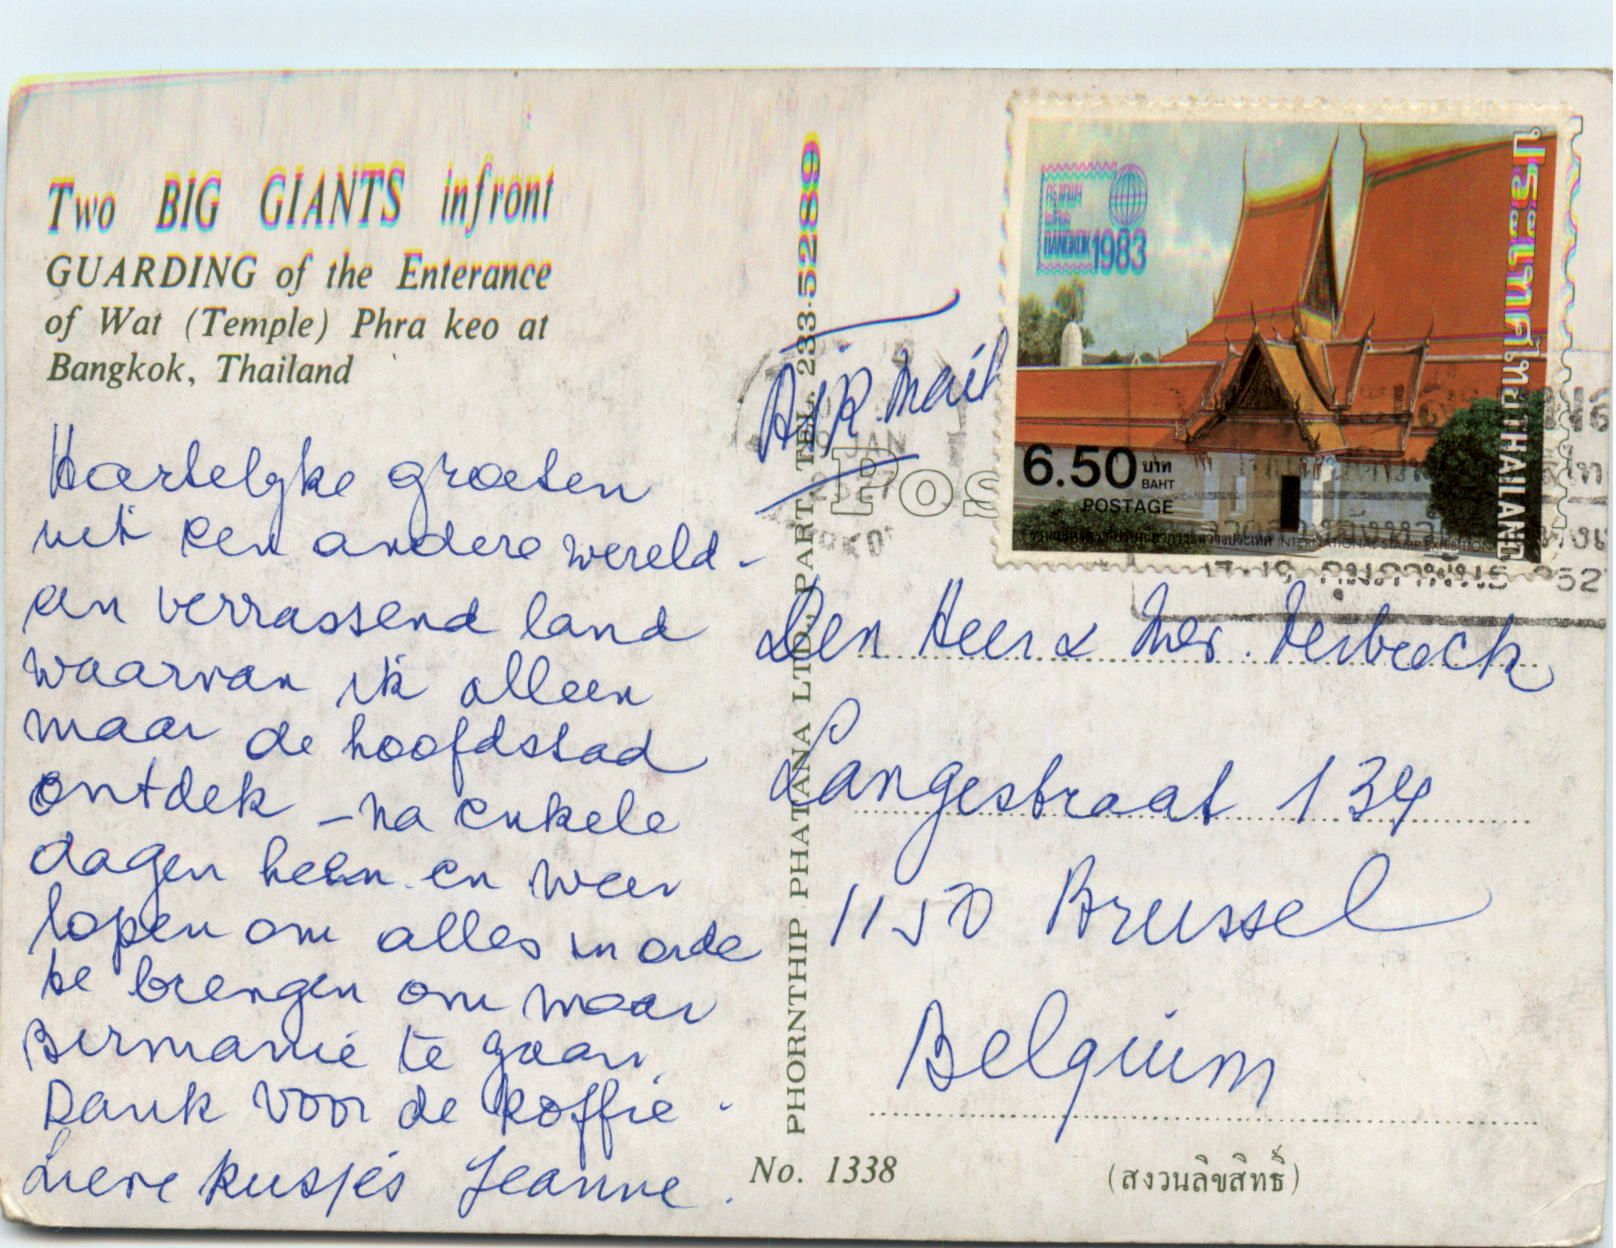 Two BIG GIANTS infront
GUARDING of the Enterance
of Wat (Temple) Phra keo at
Bangkok, Thailand
Hartelijke groeten
uit een andere wereld -
een verrassend land
waarvan ik alleen
maar de hoofdstad
ontdek - na enkele
dagen heen en weer
lopen om alles in orde
te brengen om naar
Birmanie te gaan.
Dank voor de koffie.
Lieve kusjes Jeanne.
PHORNTHIP PHATANA LTD., PART. TEL. 233-5289
AIR Mail
JAN
Pos
กรุงเทพฯ
๒๕๒๖
BANGKOK 1983
ประเทศไทย THAILAND
6.50 บาท
BAHT
POSTAGE
INTERNATIONAL STAMP EXHIBITION
Den Heer & Mev. Verbeeck
Langestraat 134
1150 Brussel
Belgium
No. 1338
(สงวนลิขสิทธิ์)